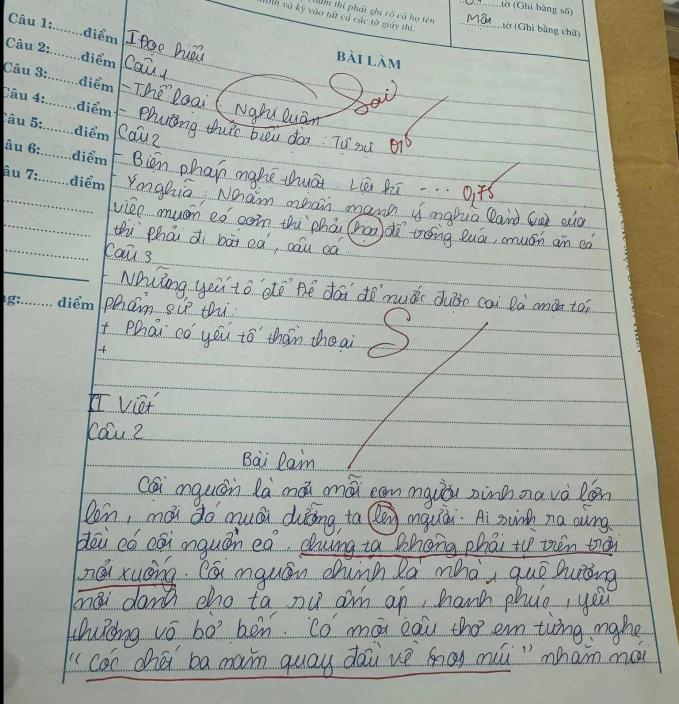 làm thi phải ghi rõ cả họ tên
mình và ký vào tất cả các tờ giấy thi.
tờ (Ghi bằng số)
Một tờ (Ghi bằng chữ)
BÀI LÀM
Câu 1:.......điểm
Câu 2:.......điểm
Câu 3:.......điểm
Câu 4:.......điểm
Câu 5:.......điểm
Câu 6:.......điểm
âu 7:.......điểm
ng:....... điểm
I Đọc hiểu
Câu 1
- Thể loại Nghị luận Sai
- Phương thức biểu đạt: Tự sự 0,5
Câu 2
- Biện pháp nghệ thuật: Liệt kê ... 0,75
- Ý nghĩa: Nhằm nhấn mạnh ý nghĩa của
việc muốn có cơm thì phải để trồng lúa, muốn ăn cá
thì phải đi bắt cá, câu cá
Câu 3
- Những yếu tố để Đẻ đất đẻ nước được coi là một tác
phẩm sử thi:
+ Phải có yếu tố thần thoại S
+
II Viết
Câu 2
Bài làm
Cội nguồn là nơi mỗi con người sinh ra và lớn
lên, nơi đó nuôi dưỡng ta lên người. Ai sinh ra cũng
đều có cội nguồn cả, chúng ta không phải từ trên trời
rơi xuống. Cội nguồn chính là nhà, quê hương
nơi dành cho ta sự ấm áp, hạnh phúc, yêu
thương vô bờ bến. Có một câu thơ em từng nghe
"Cóc chết ba năm quay đầu về núi" nhằm nói